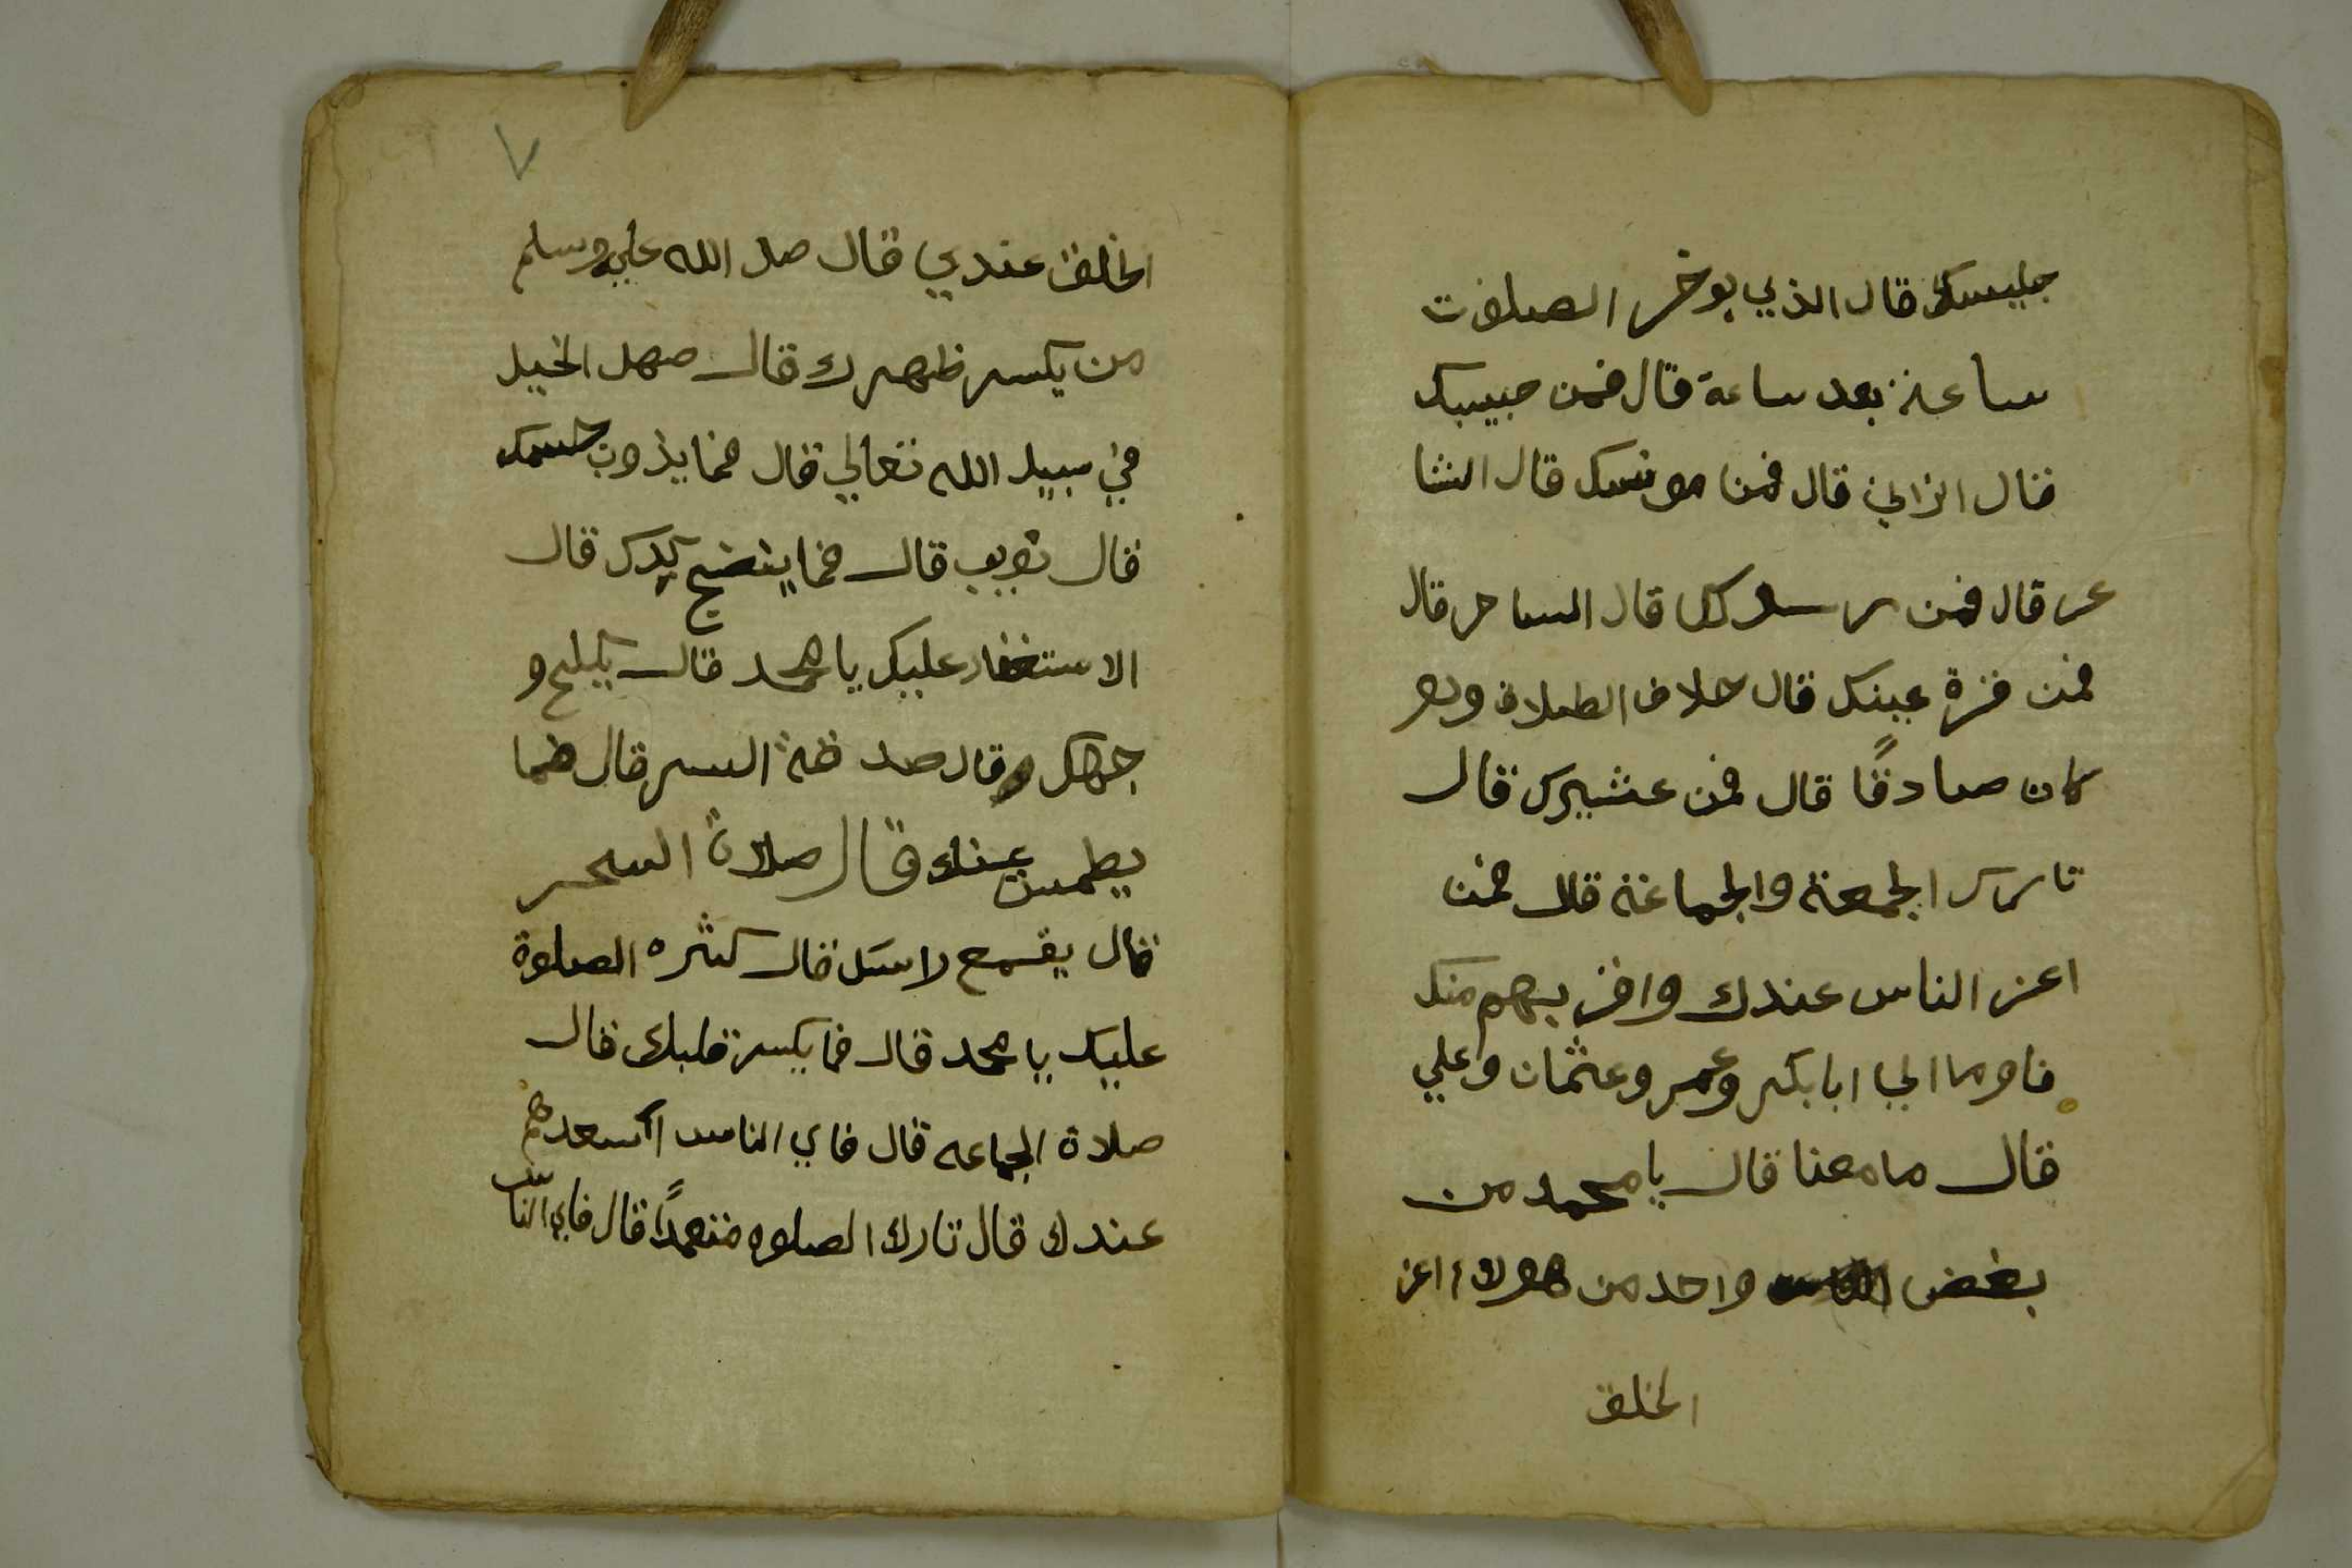 جليسك قال الذي يوخر الصلوت
ساعة بعد ساعة قال فمن حبيبك
قال الزاني قال فمن مونسك قال الشا
عر قال فمن رسولك قال الساحر قال
فمن قرة عينك قال حلاف الطلاق ولو
كان صادقًا قال فمن عشيرك قال
تارك الجمعة والجماعة قال فمن
اعز الناس عندك واقربهم منك
فاوما الي ابابكر وعمر وعثمان وعلي
قال مامعنا قال يا محمد من
بغض واحد من هولاء اعز
الخلق
٧
الخلق عندي قال صل الله عليه وسلم
من يكسر ظهرك قال صهل الخيل
في سبيل الله تعالي قال فما يذوب جسمك
قال توب قال فما ينضج كبدك قال
الاستغفار عليك يا محمد قال يكلح و
جهك قال صدقة السر قال فما
يطمس عينك قال صلاة السحر
قال يقمع راسك قال كثره الصلوة
عليك يا محمد قال فما يكسر قلبك قال
صلاة الجماعه قال فاي الناس اسعدهم
عندك قال تارك الصلوه متعمدًا قال فاي الناس